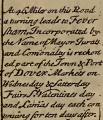 At 46 Miles on this Road
a turning leads to Fever
sham, Incorporated by
the Name of Mayor Jurats
and Comonalty is reckon
ed part of the Town & Port
of Dover Markets on
Wednesday & Saterday
Fairs Valentines day
and Lamas day each con
tinuing for ten days after.